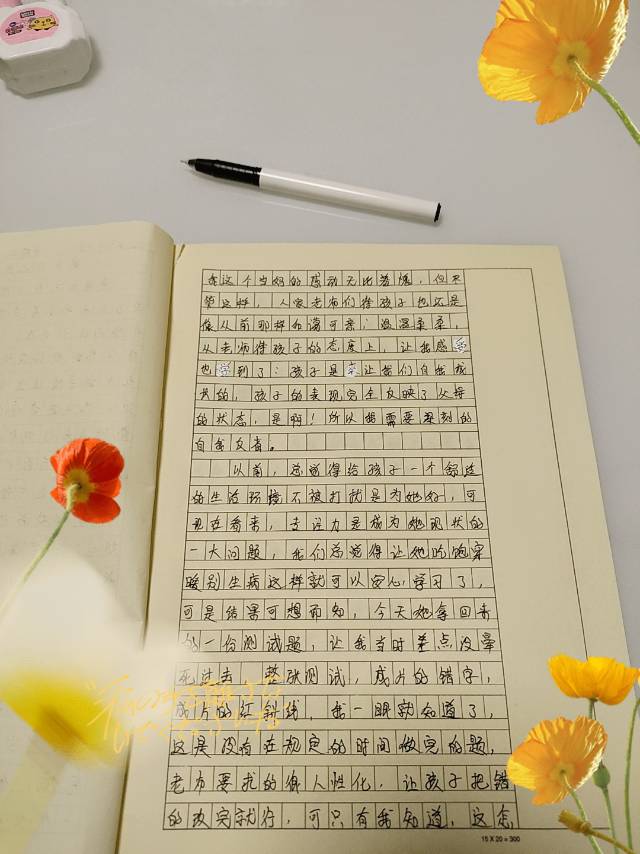 我这个当妈的感动无比羞愧，但不
管这样，人家老师们待孩子也还是
像从前那样和蔼可亲；温温柔柔，
从老师待孩子的态度上，让我感受
也学到了：孩子是来让我们自我成
长的，孩子的表现完全反映了父母
的状态，是啊！所以我需要深刻的
自我反省。
以前，总觉得给孩子一个舒适
的生活环境不被打就是为她好，可
现在看来，专注力是成为她现状的
一大问题，我们总觉得让她吃饱穿
暖别生病这样就可以安心学习了，
可是结果可想而知，今天她拿回来
的一份测试题，让我当时差点没晕
死过去，整张测试，成片的错字，
成片的红斜线，我一眼就知道了，
这是没有在规定的时间做完的题，
老师要求的很人性化，让孩子把错
的改完就行，可只有我知道，这怎
15 X 20 = 300